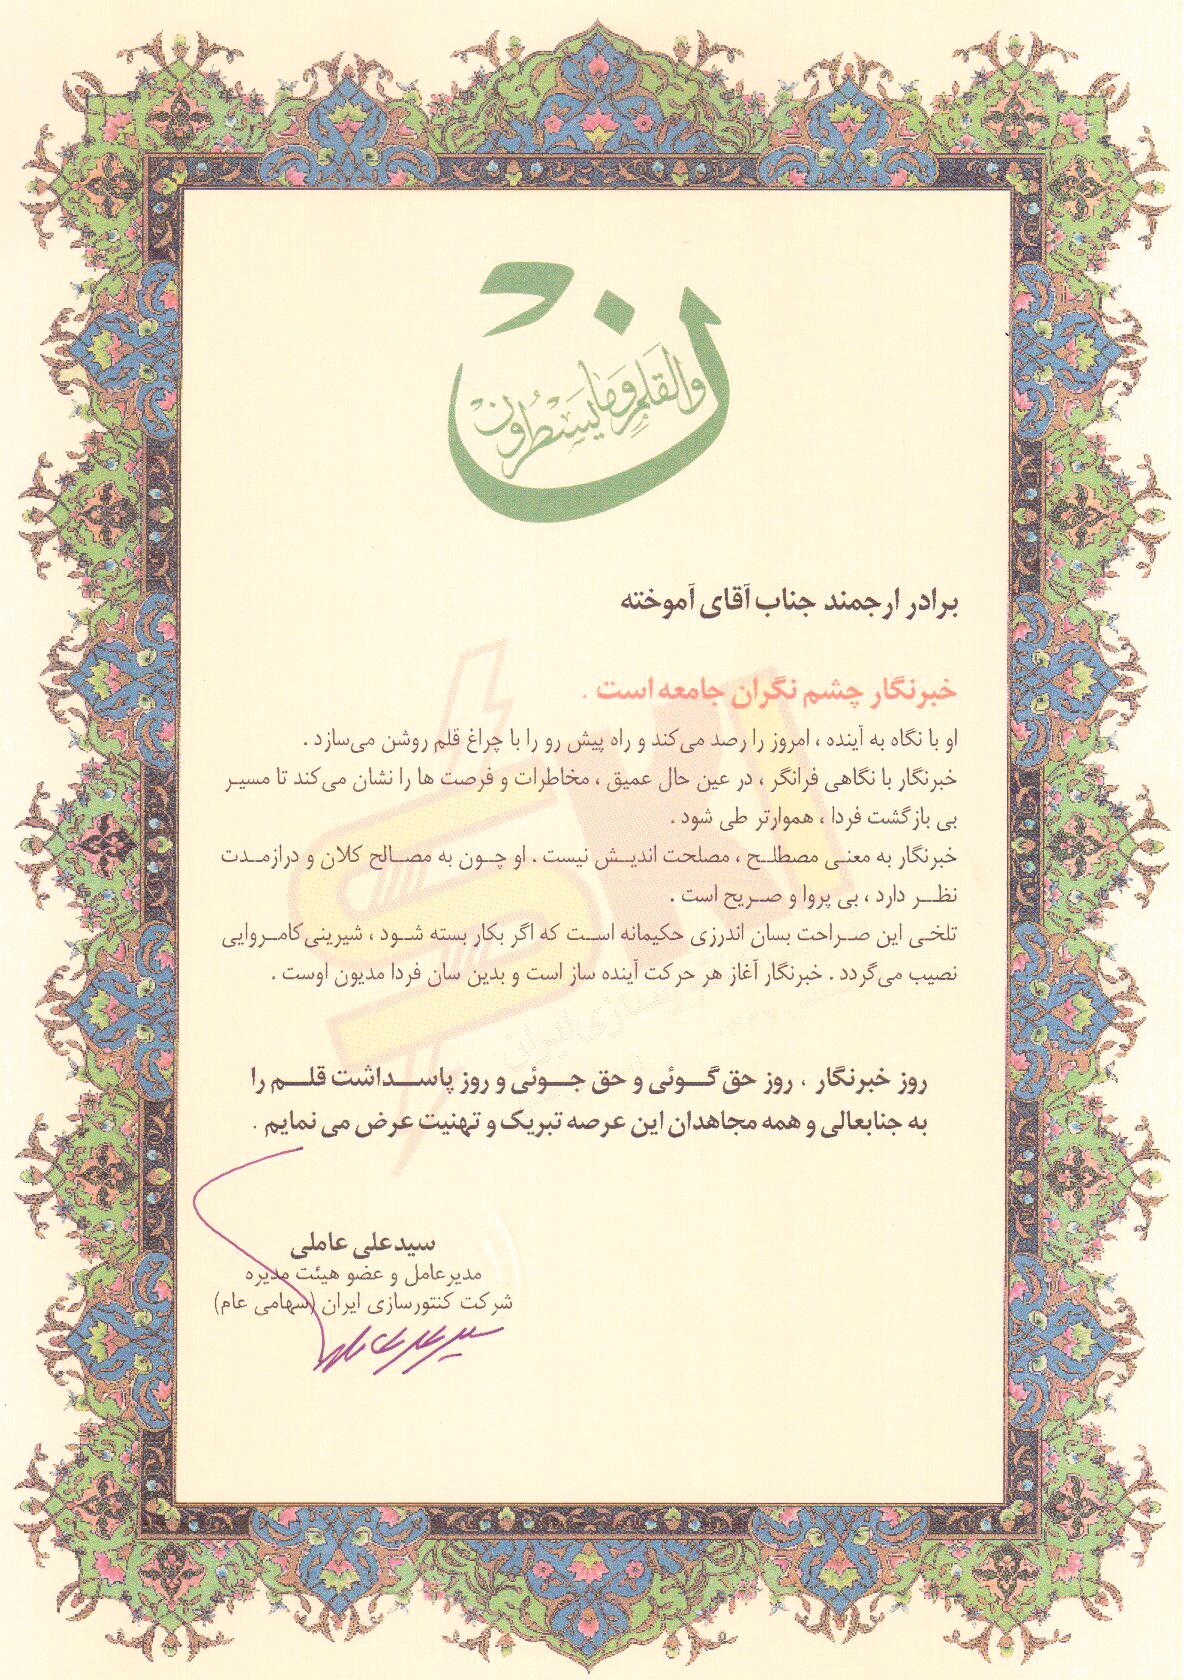 ن والقلم وما يسطرون
برادر ارجمند جناب آقای آموخته
خبرنگار چشم نگران جامعه است .
او با نگاه به آینده ، امروز را رصد می‌کند و راه پیش رو را با چراغ قلم روشن می‌سازد .
خبرنگار با نگاهی فرانگر ، در عین حال عمیق ، مخاطرات و فرصت ها را نشان می‌کند تا مسیر
بی بازگشت فردا ، هموارتر طی شود .
خبرنگار به معنی مصطلح ، مصلحت اندیش نیست . او چون به مصالح کلان و درازمدت
نظر دارد ، بی پروا و صریح است .
تلخی این صراحت بسان اندرزی حکیمانه است که اگر بکار بسته شود ، شیرینی کامروایی
نصیب می‌گردد . خبرنگار آغاز هر حرکت آینده ساز است و بدین سان فردا مدیون اوست .
روز خبرنگار ، روز حق گوئی و حق جوئی و روز پاسداشت قلم را
به جنابعالی و همه مجاهدان این عرصه تبریک و تهنیت عرض می نمایم .
سیدعلی عاملی
مدیرعامل و عضو هیئت مدیره
شرکت کنتورسازی ایران (سهامی عام)